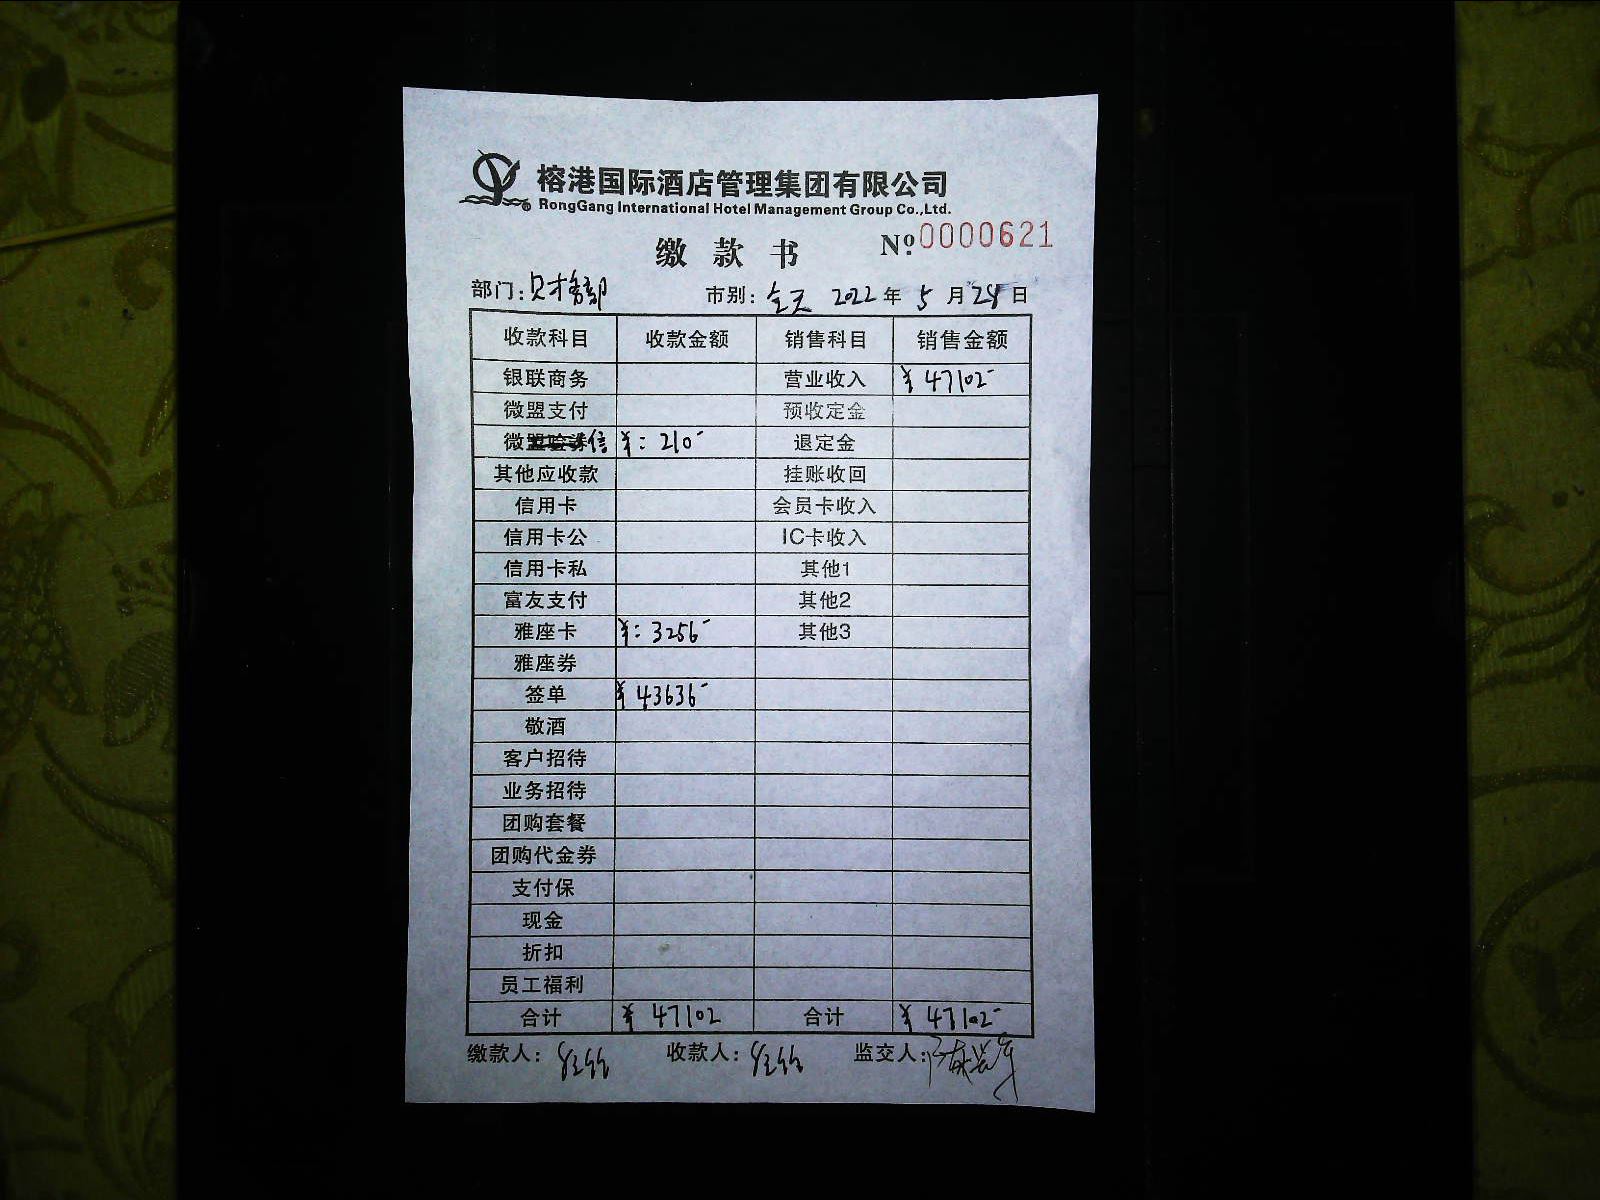 榕港国际酒店管理集团有限公司
RongGang International Hotel Management Group Co.,Ltd.
缴款书 Nº0000621
部门:财务部 市别:全天 2022年5月28日
收款科目 收款金额 销售科目 销售金额
银联商务 营业收入 ¥ 47102-
微盟支付 预收定金
微信 ¥: 210- 退定金
其他应收款 挂账收回
信用卡 会员卡收入
信用卡公 IC卡收入
信用卡私 其他1
富友支付 其他2
雅座卡 ¥: 3256- 其他3
雅座券
签单 ¥ 43636-
敬酒
客户招待
业务招待
团购套餐
团购代金券
支付保
现金
折扣
员工福利
合计 ¥ 47102 合计 ¥ 47102-
缴款人: 收款人: 监交人: